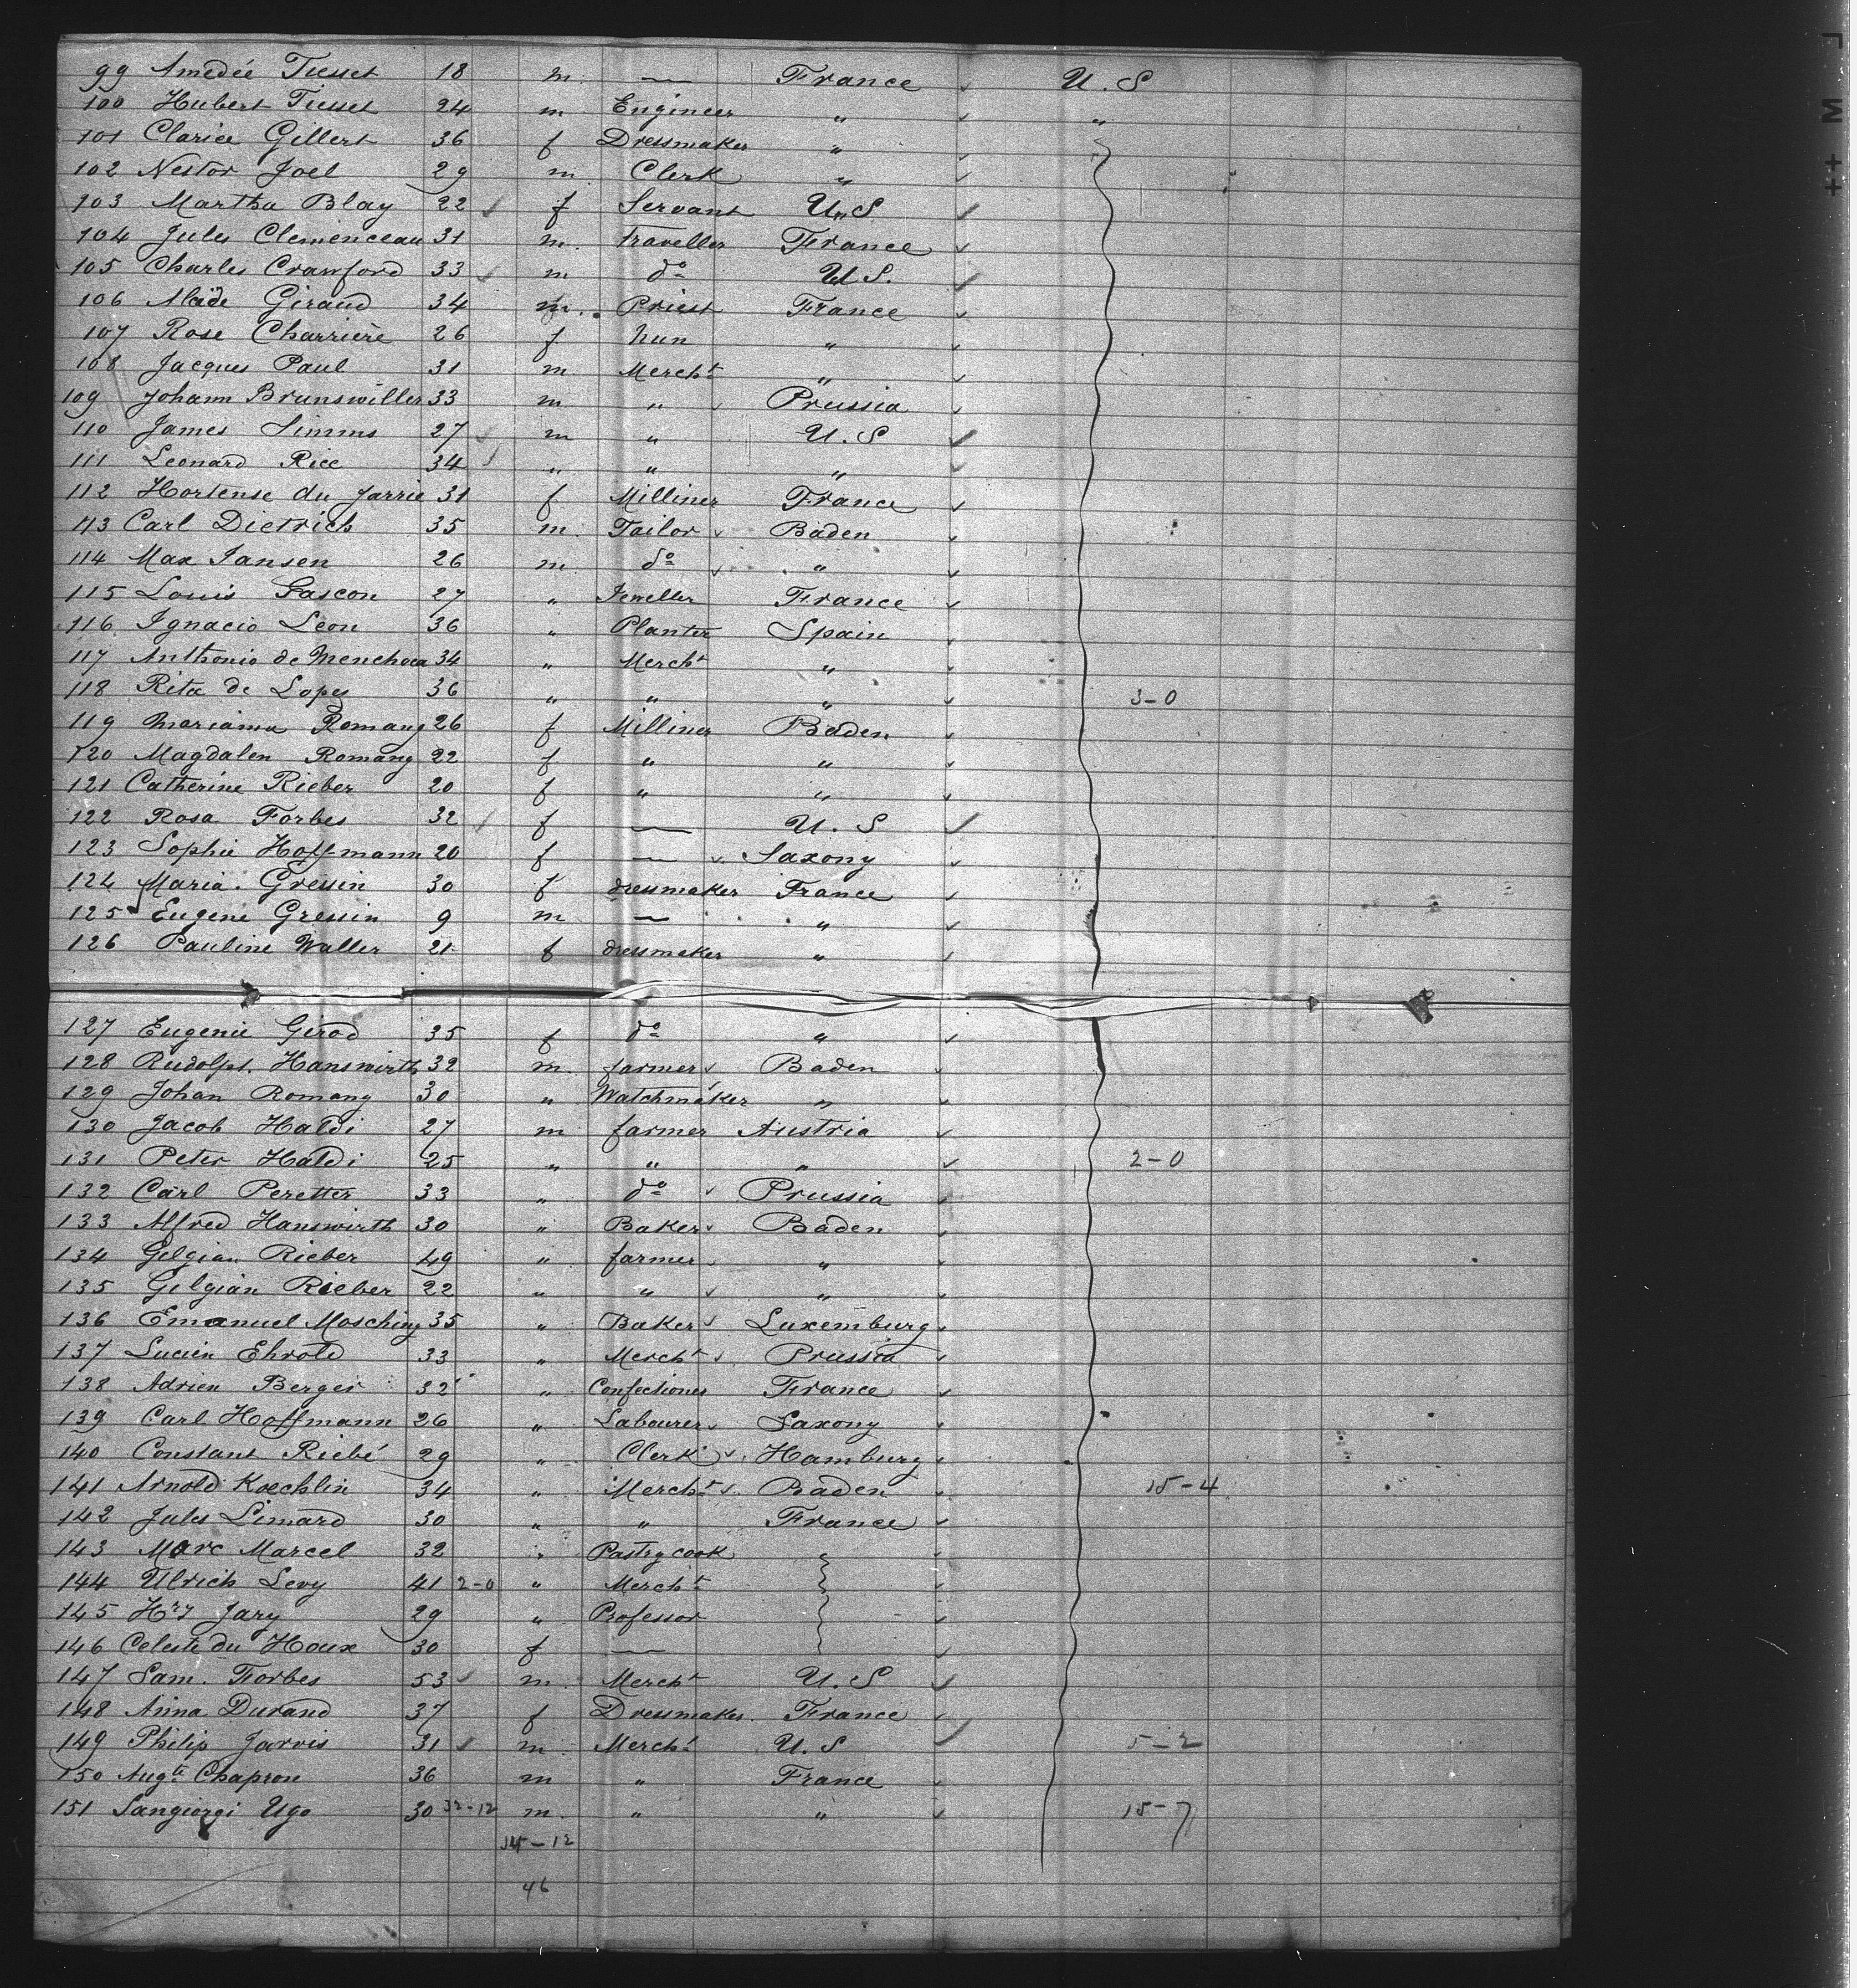 99 Amedée Tiesset 18 m. — France U. S
100 Hubert Tiesset 24 m Engineer " "
101 Clarice Gillert 36 f Dressmaker "
102 Nestor Joel 29 m. Clerk "
103 Martha Blay 22 f Servant U. S
104 Jules Clemenceau 31 m. traveller France
105 Charles Crawford 33 m do U. S.
106 Alaide Giraud 34 m. Priest France
107 Rose Charriere 26 f nun "
108 Jacques Paul 31 m Merch.t "
109 Johann Brunswiller 33 m " Prussia
110 James Simms 27 m " U. S
111 Leonard Rice 34 " " "
112 Hortense du Jarrie 31 f Milliner France
113 Carl Dietrich 35 m. Tailor Baden
114 Max Jansen 26 m. do "
115 Louis Gascon 27 " Jeweller France
116 Ignacio Leon 36 " Planter Spain
117 Anthonio de 34 " Mercht "
118 Rita de Lopes 36 " " " 3-0
119 Mariana Romang 26 f Milliner Baden
120 Magdalen Romang 22 f " "
121 Catherine Rieber 20 f " "
122 Rosa Forbes 32 f — U. S
123 Sophie Hoffmann 20 f — Saxony
124 Maria. Gressin 30 f dressmaker France
125 Eugene Gressin 9 m — "
126 Pauline Waller 21 f dressmaker "
127 Eugenie Girod 35 f do "
128 Rudolph. Hanswirth 32 m. farmer Baden
129 Johan Romang 30 " Watchmaker "
130 Jacob Haldi 27 m farmer Austria
131 Peter Haldi 25 " " " 2-0
132 Carl Peretter 33 " do Prussia
133 Alfred Hanswirth 30 " Baker Baden
134 Gelgian Rieber 49 " farmer "
135 Gilgian Rieber 22 " " "
136 Emanuel Mosching 35 " Baker Luxemburg
137 Lucien Ehrold 33 " Mercht Prussia
138 Adrien Berger 32 " Confectioner France
139 Carl Hoffmann 26 " Labourer Saxony
140 Constant Riebé 29 " Clerk Hamburg
141 Arnold Koechlin 34 " Mercht Baden 15-4
142 Jules Limard 30 " " France
143 Marc Marcel 32 " Pastry cook "
144 Ulrich Levy 41 2-0 " Mercht
145 Hry Jary 29 " Professor
146 Celeste du Houx 30 f —
147 Sam. Forbes 53 m. Mercht U. S
148 Anna Durand 37 f Dressmaker. France
149 Philip Jarvis 31 m Mercht U. S 5-2
150 Augte Chapron 36 m " France
151 Sangiorgi Ugo 30 32-12 m. " " 15-7
-12
46